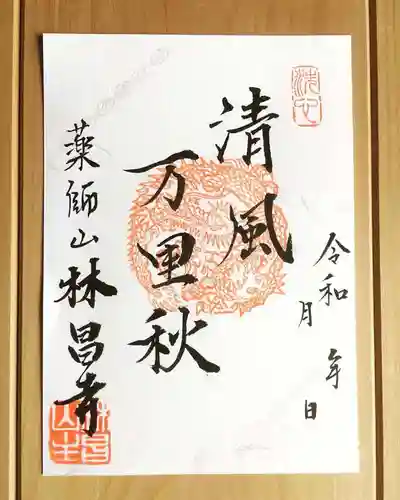 清風
万里秋
令和 年
月 日
薬師山 林昌寺